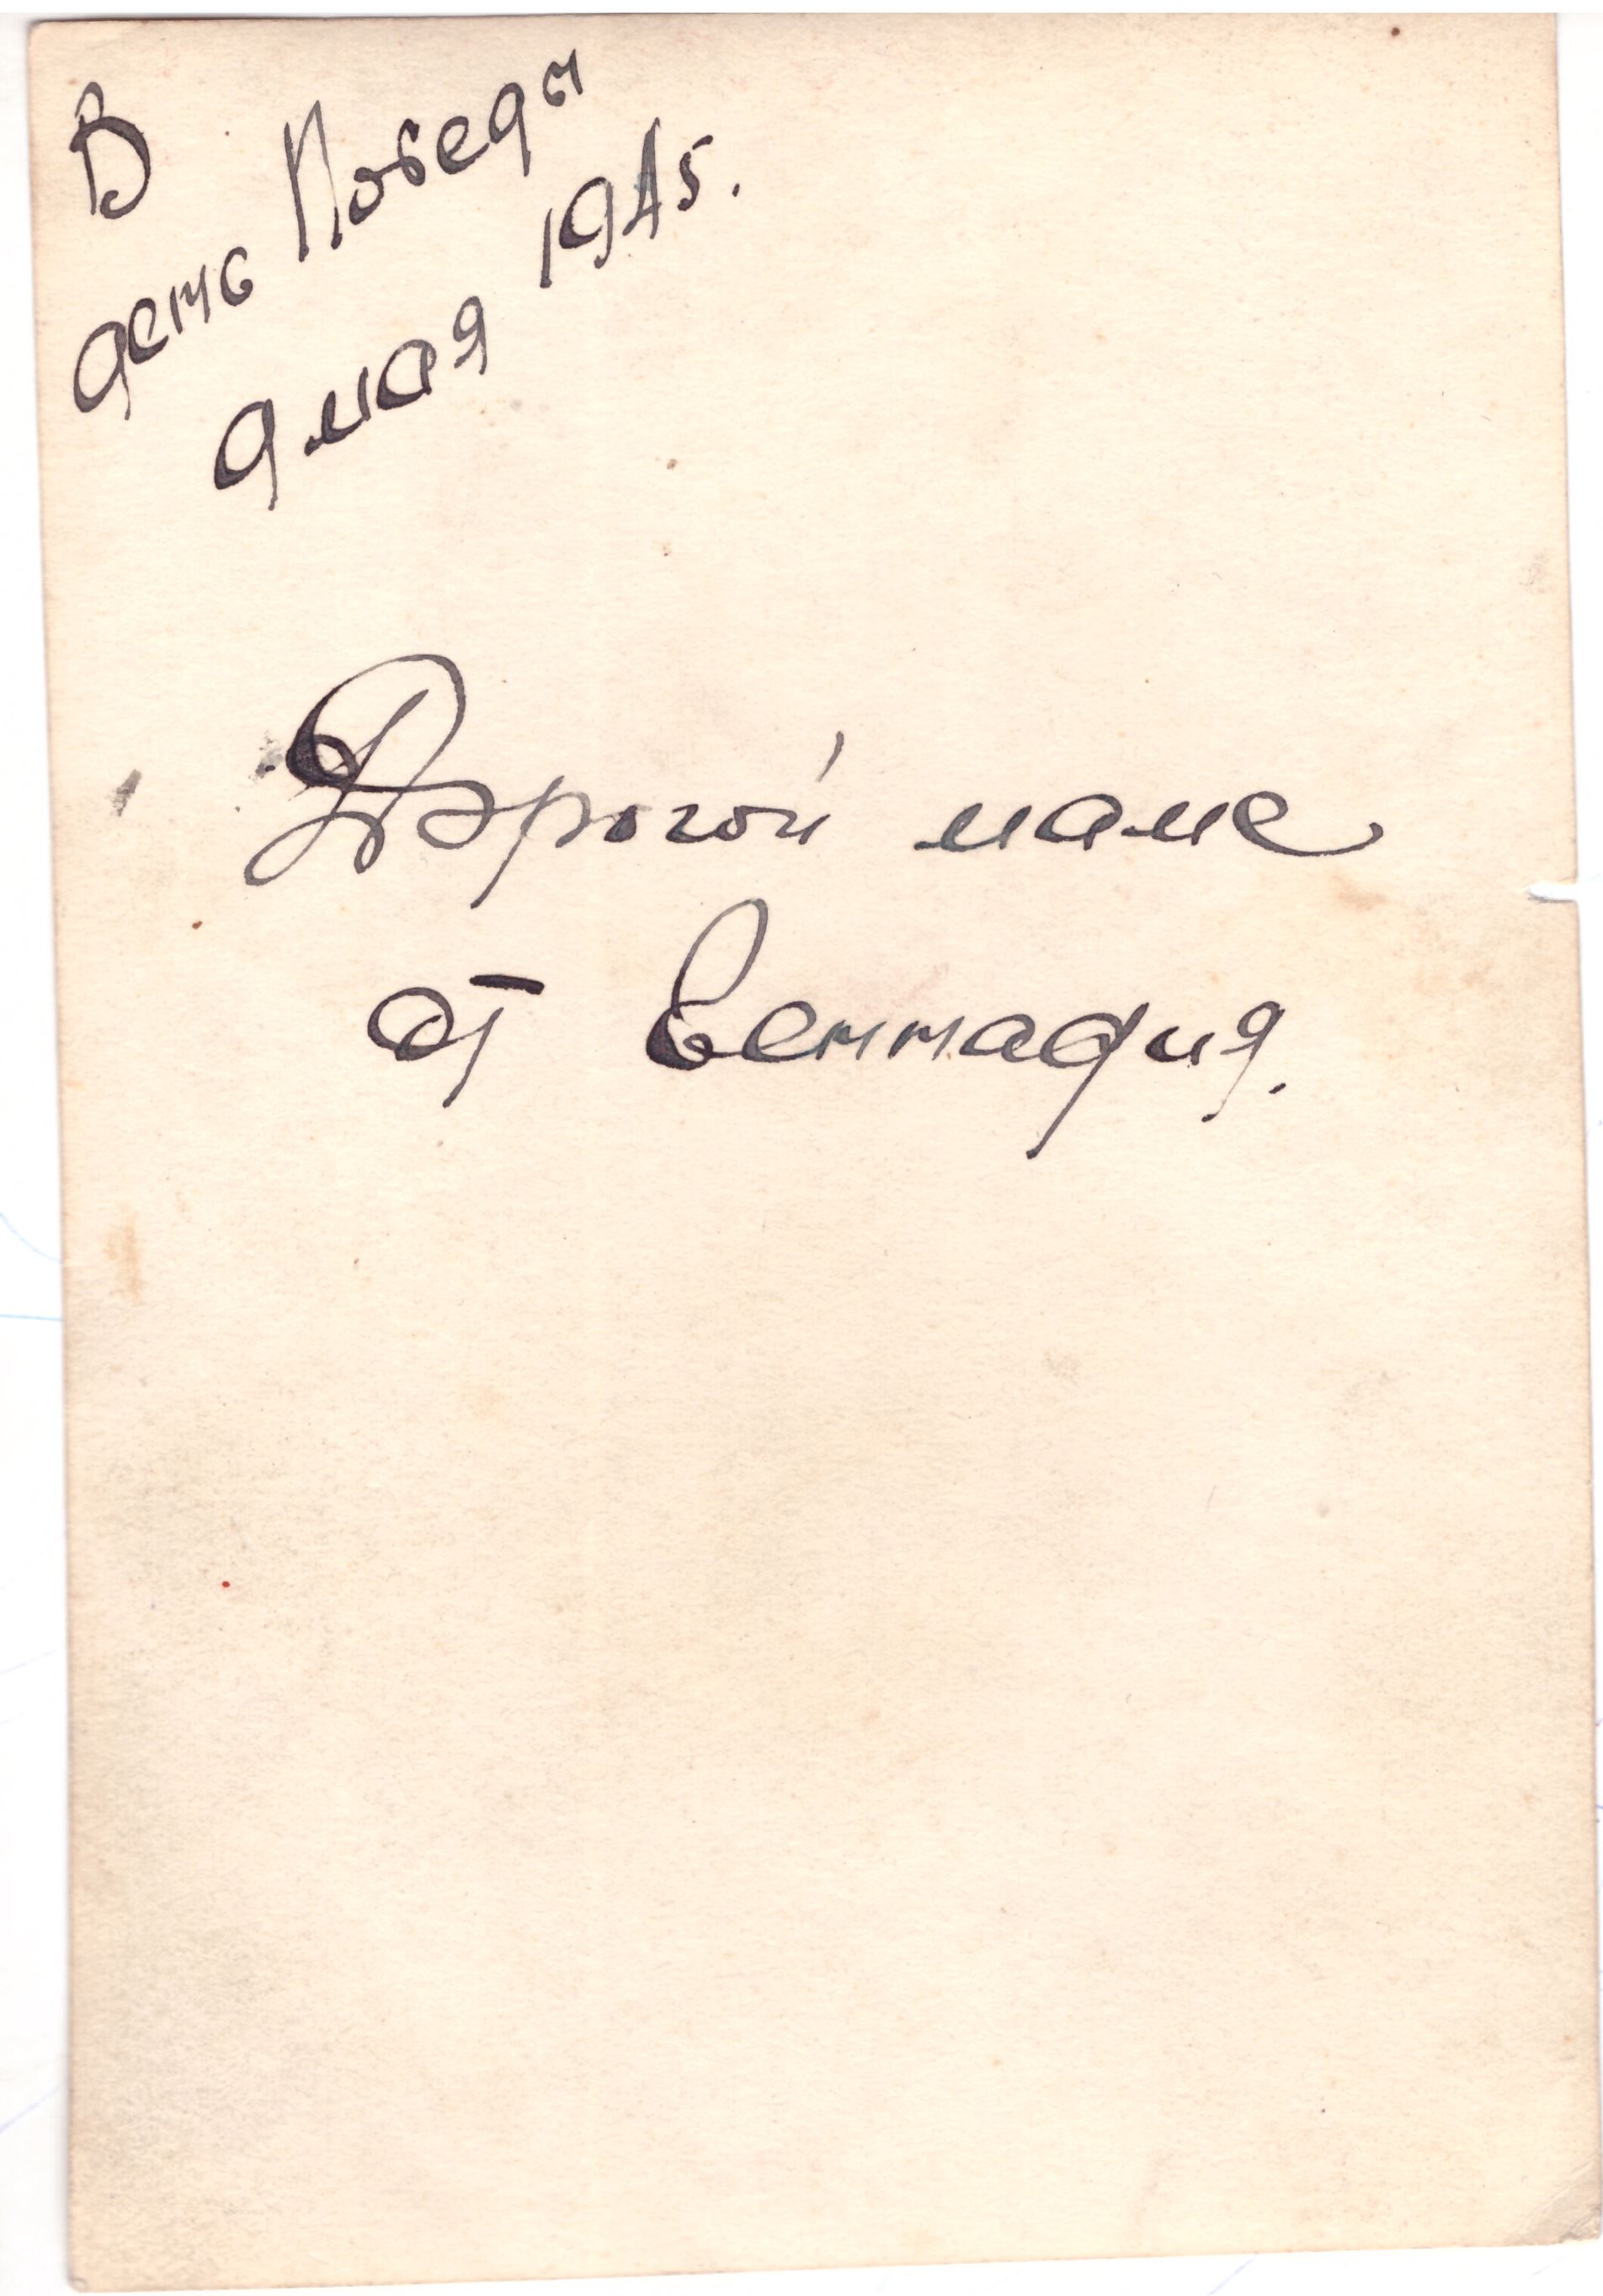 В
день Победы
9 мая 1945.
Дорогой маме
от Геннадия.